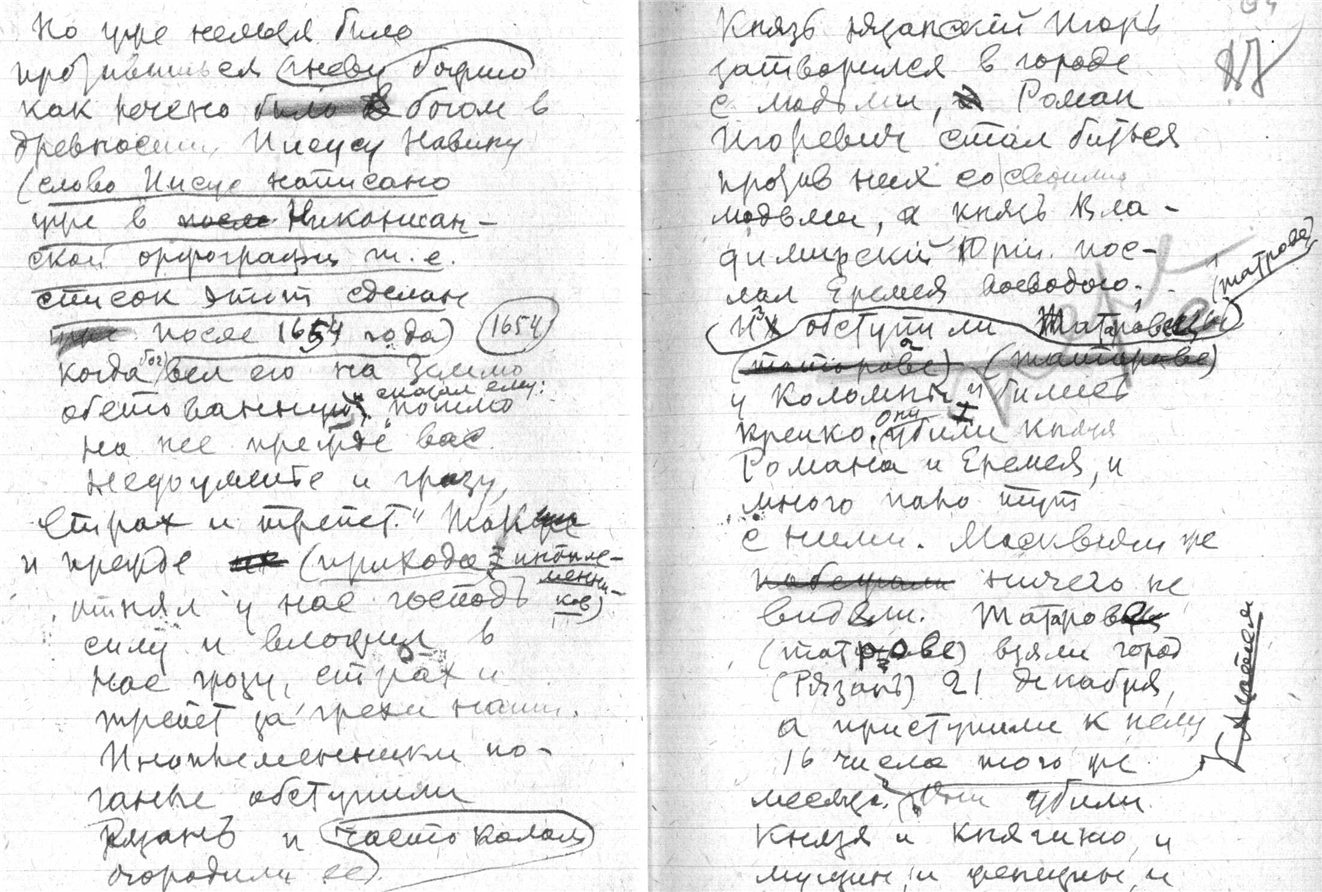 Но уже нельзя было
противиться гневу божию
как речено было в богом в
древности Иисусу Навину
(слово Иисус написано
уже в после Никониан-
ской орфографии т.е.
список этот сделан
уже после 1654 года) 1654
когда бог вел его на Землю
обетованную, сказал ему:
"пошлю
на нее прежде вас
недоумение и грозу,
страх и трепет." Так же
и прежде (прихода иноплеменников)
отнял у нас господь
силу и вложил в
нас грозу, страх и
трепет за грехи наши.
Иноплеменники по-
ганые обступили
Рязань и частоколом
огородили ее.
87
Князь рязанский Игорь
затворился в городе
с людьми, Роман
Игоревич стал биться
против них со своими
людьми, а князь Вла-
димирский Юрий пос-
лал Еремея воеводою.
(татарове)
Их обступили Татаровцы
(татарове) (татарове)
у Коломны и бились
крепко. Они убили князя
Романа и Еремея, и
много пало тут
с ними. Москвичи же
побежали ничего не
видели. Татаров
(татарове) взяли город
(Рязань) 21 декабря,
а приступили к нему
16 числа того же
месяца. Они убили
Князя и Княгиню, и
мужчин, и женщин, и